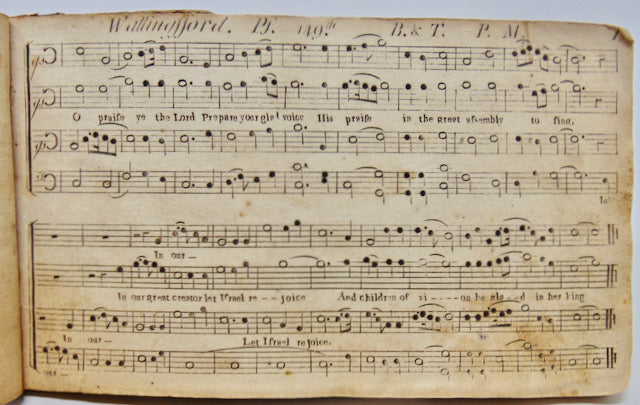 Wallingsford. Ps. 149th B. & T. P. M.
O praise ye the Lord Prepare your glad voice His praise in the great assembly to sing.
In
In our —
In our great creator let Israel re - - joice And children of zi - - - - on be gla - - d in her king
In our — Let Israel rejoice.
our —